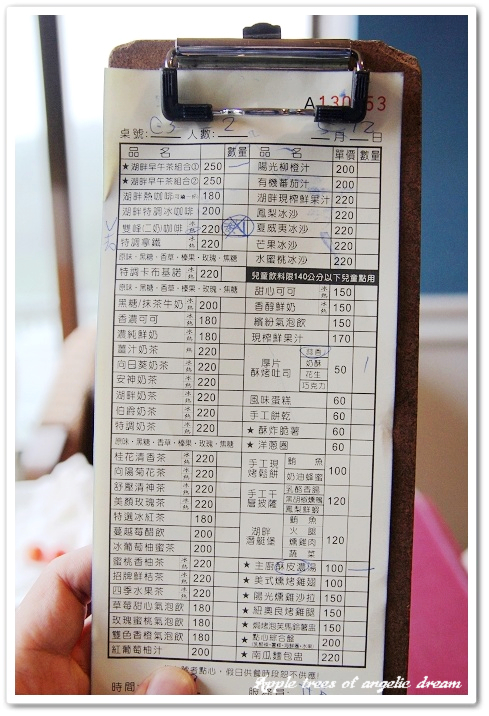 A130
桌號: C3 人數: 2 5月12日
品名 數量 品名 單價 數量
★湖畔早午茶組合① 250 一
★湖畔早午茶組合② 250
湖畔熱咖啡 180
湖畔特調冰咖啡 200
雙峰仁奶咖啡 冰熱 220
特調拿鐵 冰熱 220
原味、黑糖、香草、榛果、玫瑰、焦糖
特調卡布基諾 冰熱 220
原味、黑糖、香草、榛果、玫瑰、焦糖
黑糖/抹茶牛奶 冰熱 200
香濃可可 冰熱 180
濃純鮮奶 冰熱 180
薑汁奶茶 熱 220
向日葵奶茶 冰熱 220
安神奶茶 冰熱 220
湖畔奶茶 冰熱 220
伯爵奶茶 冰熱 220
特調奶茶 冰熱 220
原味、黑糖、香草、榛果、玫瑰、焦糖
桂花清香茶 冰熱 220
向陽菊花茶 冰熱 220
舒壓清神茶 冰熱 220
美顏玫瑰茶 冰熱 220
特選冰紅茶 180
蔓越莓醋飲 200
冰葡萄柚蜜茶 200
蜜桃香柚茶 冰熱 220
招牌鮮桔茶 冰熱 220
四季水果茶 冰熱 220
草莓甜心氣泡飲 180
玫瑰蜜桃氣泡飲 180
雙色香橙氣泡飲 180
紅葡萄柚汁 200
陽光柳橙汁 200
有機蕃茄汁 200
湖畔現榨鮮果汁 220
鳳梨冰沙 220
夏威夷冰沙 220
芒果冰沙 220
水蜜桃冰沙 220
兒童飲料限140公分以下兒童點用
甜心可可 冰熱 150
香醇鮮奶 冰熱 150
繽紛氣泡飲 150
現榨鮮果汁 170
厚片酥烤吐司 奶酥 花生 巧克力 50 1
風味蛋糕 60
手工餅乾 60
★酥炸脆薯 100
★洋蔥圈 60
手工現烤鬆餅 鮪魚 奶油蜂蜜 100
手工千層披薩 乳酪香腸 鳳梨鮮蝦 120
湖畔潛艇堡 鮪魚 火腿 燻雞肉 蔬菜 120
★主廚酥皮濃湯 100 一
★美式燻烤雞翅 100
★陽光燻雞沙拉 150
★紐奧良烤雞腿 150
★焗烤泡芙馬鈴薯盅 150
★點心綜合盤 200
★南瓜麵包盅 220
點心，假日供餐時段恕不供應!
時間:
Apple trees of angelic dream